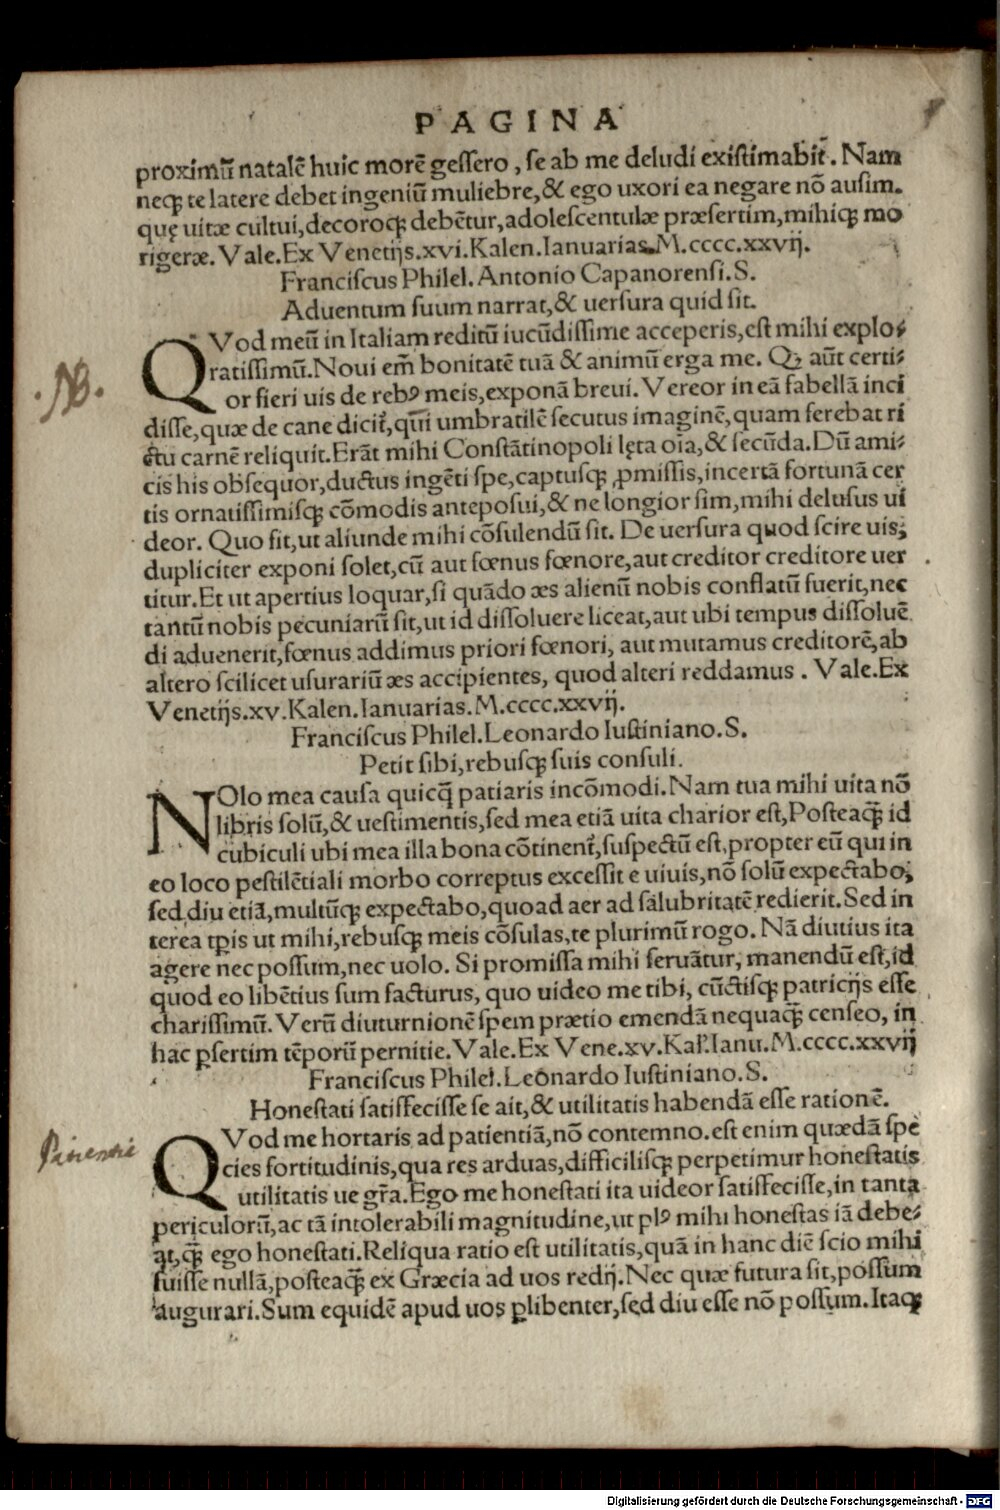 PAGINA
proximū natalē huic morē geſſero, ſe ab me deludi exiſtimabit̃. Nam
neqꝫ te latere debet ingeniū muliebre,& ego uxori ea negare nō auſim.
quę uitæ cultui,decoroqꝫ debētur,adoleſcentulæ præſertim,mihiqꝫ mo
rigeræ. Vale.Ex Venetijs.xvi.Kalen.Ianuarias.M.cccc.xxvij.
Franciſcus Philel. Antonio Capanorenſi.S.
Aduentum ſuum narrat,& uerſura quid ſit.
QVod meū in Italiam reditū iucūdiſſime acceperis,eſt mihi explo-
.NB.
ratiſſimū.Noui em̄ bonitatē tuā & animū erga me. Qꝫ aūt certi-
or fieri uis de rebꝰ meis,exponā breui. Vereor in eā fabellā inci
diſſe,quæ de cane dicit̃,qūi umbratilē ſecutus imaginē,quam ferebat ri
ctu carnē reliquit.Erāt mihi Conſtātinopoli lęta oīa,& ſecūda.Dū ami-
cis his obſequor,ductus ingēti ſpe,captuſqꝫ ꝓmiſſis,incertā fortunā cer
tis ornatiſſimiſqꝫ cōmodis antepoſui,& ne longior ſim,mihi deluſus ui
deor. Quo ſit,ut aliunde mihi cōſulendū ſit. De uerſura quod ſcire uis,
dupliciter exponi ſolet,cū aut fœnus fœnore,aut creditor creditore uer
titur.Et ut apertius loquar,ſi quādo æs alienū nobis conflatū fuerit,nec
tantū nobis pecuniarū ſit,ut id diſſoluere liceat,aut ubi tempus diſſoluē
di aduenerit,fœnus addimus priori fœnori, aut mutamus creditorē,ab
altero ſcilicet uſurariū æs accipientes, quod alteri reddamus . Vale.Ex
Venetijs.xv.Kalen.Ianuarias.M.cccc.xxvij.
Franciſcus Philel.Leonardo Iuſtiniano.S.
Petit ſibi,rebuſqꝫ ſuis conſuli.
NOlo mea cauſa quicq̄ patiaris incōmodi.Nam tua mihi uita nō
libris ſolū,& ueſtimentis,ſed mea etiā uita charior eſt,Poſteaqꝫ̄ id
cubiculi ubi mea illa bona cōtinent̃,ſuſpectū eſt,propter eū qui in
eo loco peſtilētiali morbo correptus exceſſit e uiuis,nō ſolū expectabo,
ſed diu etiā,multūqꝫ expectabo,quoad aer ad ſalubritatē redierit.Sed in
terea tp̄is ut mihi,rebuſqꝫ meis cōſulas,te plurimū rogo. Nā diutius ita
agere nec poſſum,nec uolo. Si promiſſa mihi ſeruātur, manendū eſt,id
quod eo libētius ſum facturus, quo uideo me tibi, cūctiſqꝫ patricijs eſſe
chariſſimū. Verū diuturnionē ſpem prætio emendā nequaqꝫ̄ cenſeo, in
hac p̱ſertim tēporū pernitie. Vale.Ex Vene.xv.Kal̃.Ianu.M.cccc.xxvij
Franciſcus Philel.Leonardo Iuſtiniano.S.
Honeſtati ſatiſfeciſſe ſe ait,& utilitatis habendā eſſe rationē.
QVod me hortaris ad patientiā,nō contemno.eſt enim quædā ſpe
cies fortitudinis,qua res arduas,difficiliſqꝫ perpetimur honeſtatis
utilitatis ue gr̄a.Ego me honeſtati ita uideor ſatiſfeciſſe,in tanta
periculorū,ac tā intolerabili magnitudine,ut plꝰ mihi honeſtas iā debe-
at,qꝫ̄ ego honeſtati.Reliqua ratio eſt utilitatis,quā in hanc diē ſcio mihi
fuiſſe nullā,poſteaqꝫ̄ ex Græcia ad uos redij.Nec quæ futura ſit,poſſum
augurari.Sum equidē apud uos ꝑlibenter,ſed diu eſſe nō poſſum.Itaqꝫ
Digitalisierung gefördert durch die Deutsche Forschungsgemeinschaft - DFG